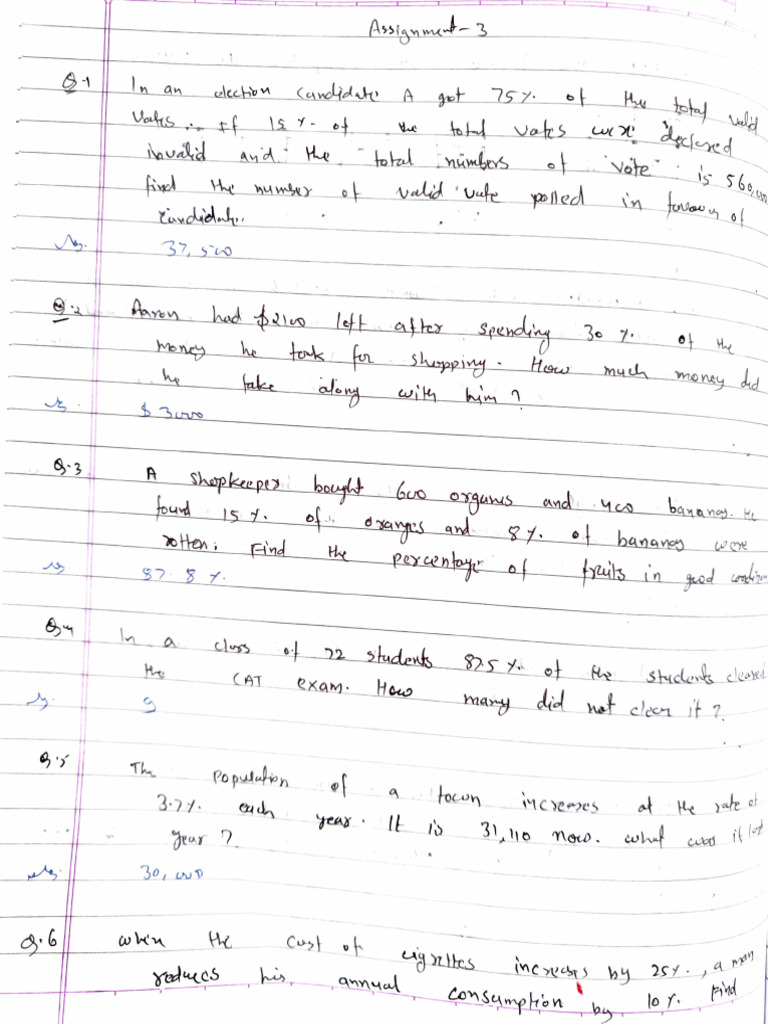 Assignment-3
Q.1 In an election candidate A got 75%. of the total valid
Votes. If 15%. of the total votes were declared
invalid and the total numbers of vote is 560,000
find the number of valid vote polled in favour of
candidate.
37,500
Q.2 Aaron had $2100 left after spending 30%. of the
money he took for shopping. How much money did
he take along with him?
$3000
Q.3 A shopkeeper bought 600 organes and 400 bananas. He
found 15%. of oranges and 8%. of bananas were
rotten. Find the percentage of fruits in good condition
87.8%.
Q.4 In a class of 72 students 87.5%. of the students cleared
the CAT exam. How many did not clear it?
9
Q.5 The population of a town increases at the rate of
3.7%. each year. It is 31,110 now. what was it last
year?
30,000
Q.6 when the cost of cigrettes increases by 25%., a man
reduces his annual consumption by 10%. Find